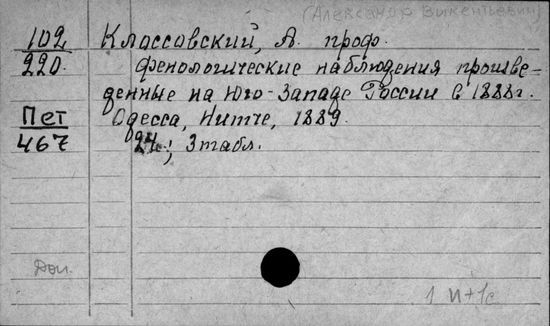 (Александр Викентьевич)
102 Классовский, А. проф.
220. Фенологические наблюдения произве-
денные на Юго-Западе России в 1888г.
Пет Одесса, Нитче, 1889.
467 24.; 3 табл.
1 п+1с